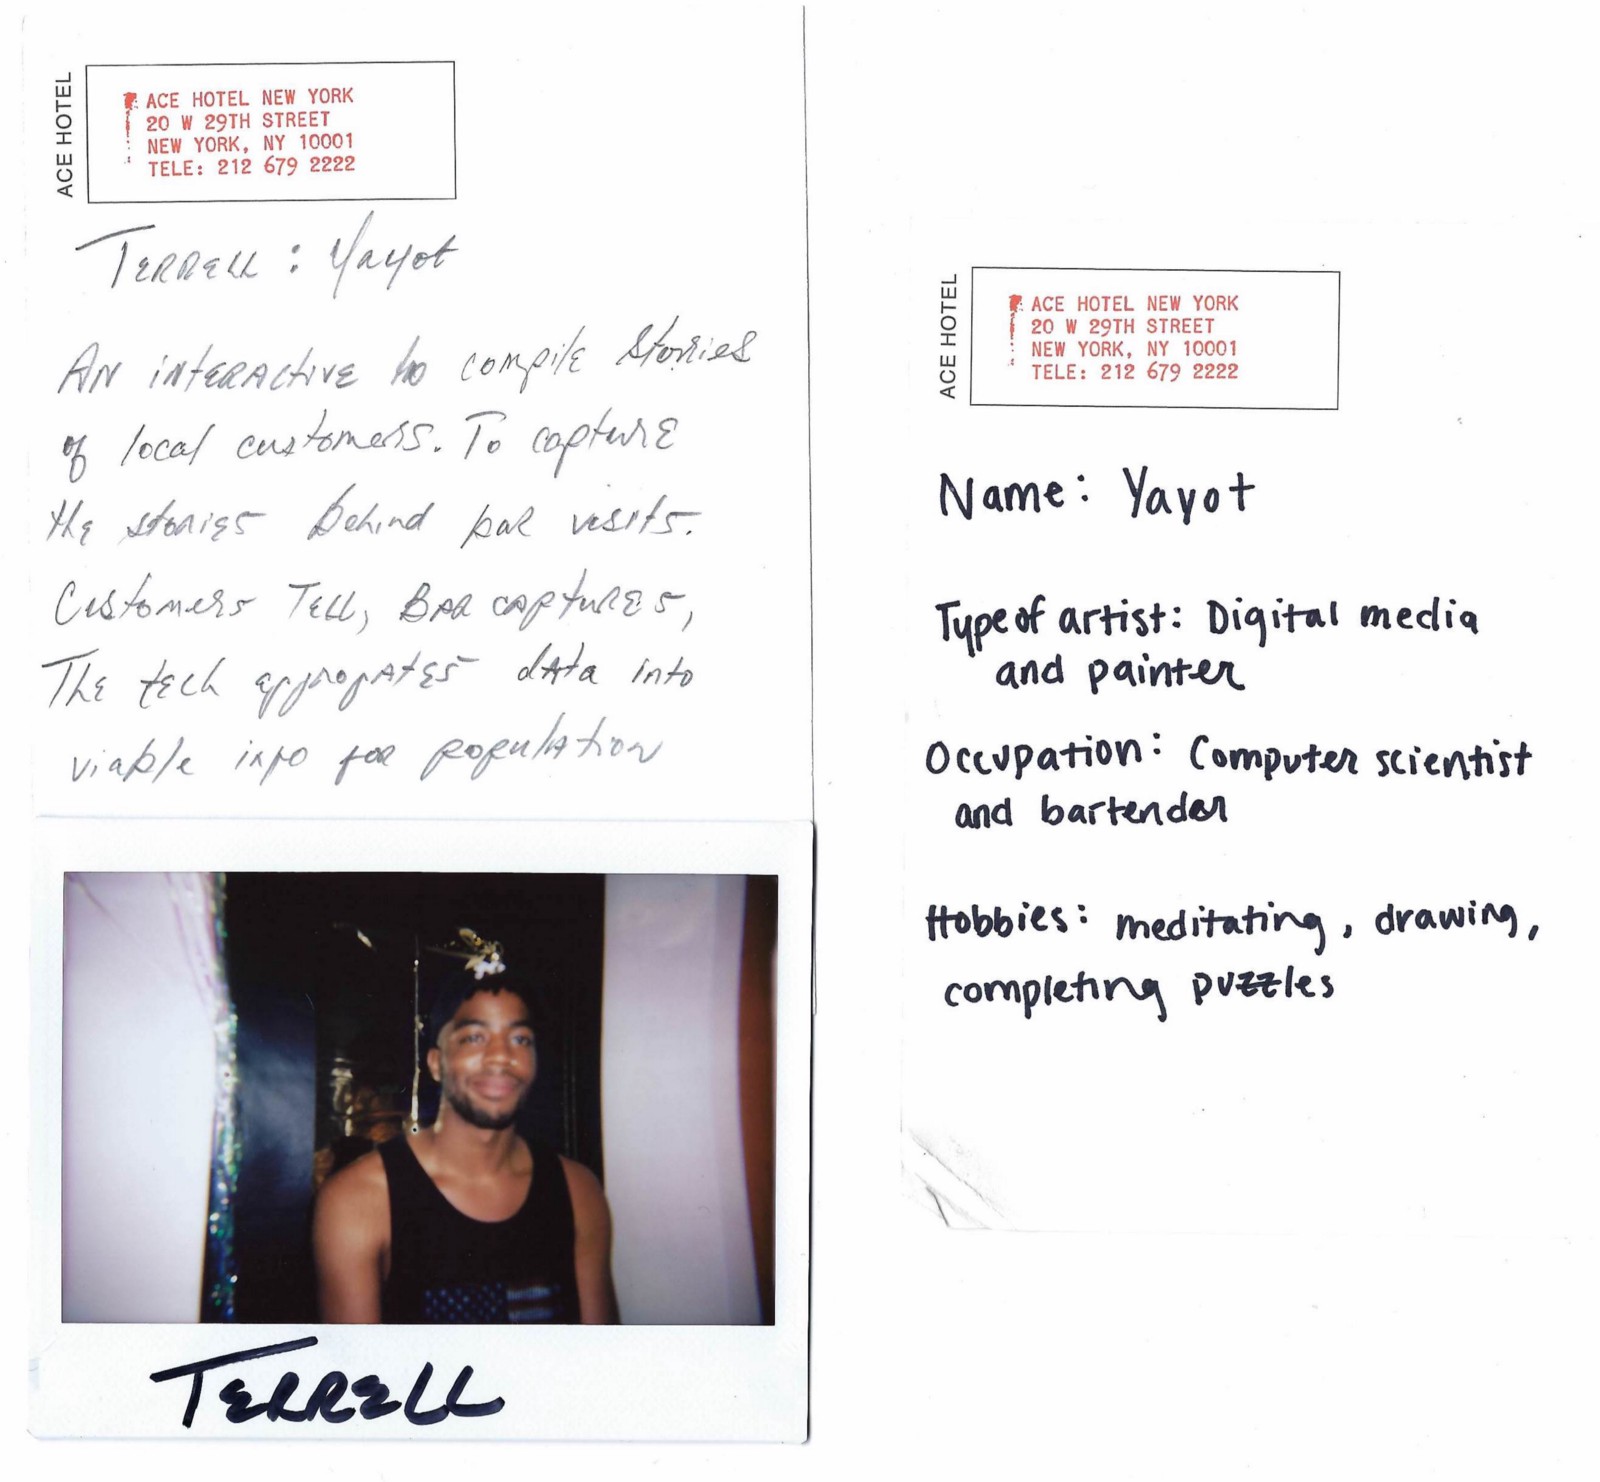 ACE HOTEL
ACE HOTEL NEW YORK
20 W 29TH STREET
NEW YORK, NY 10001
TELE: 212 679 2222
TERRELL : Yayot
AN iNTERACtiVE to compile stories
of local customers. To capture
the stories behind bar visits.
Customers TELL, BAR captures,
The tech data into
viable info for population
TERRELL
ACE HOTEL
ACE HOTEL NEW YORK
20 W 29TH STREET
NEW YORK, NY 10001
TELE: 212 679 2222
Name: Yayot
Type of artist: Digital media
and painter
Occupation: Computer scientist
and bartender
Hobbies: meditating, drawing,
completing puzzles